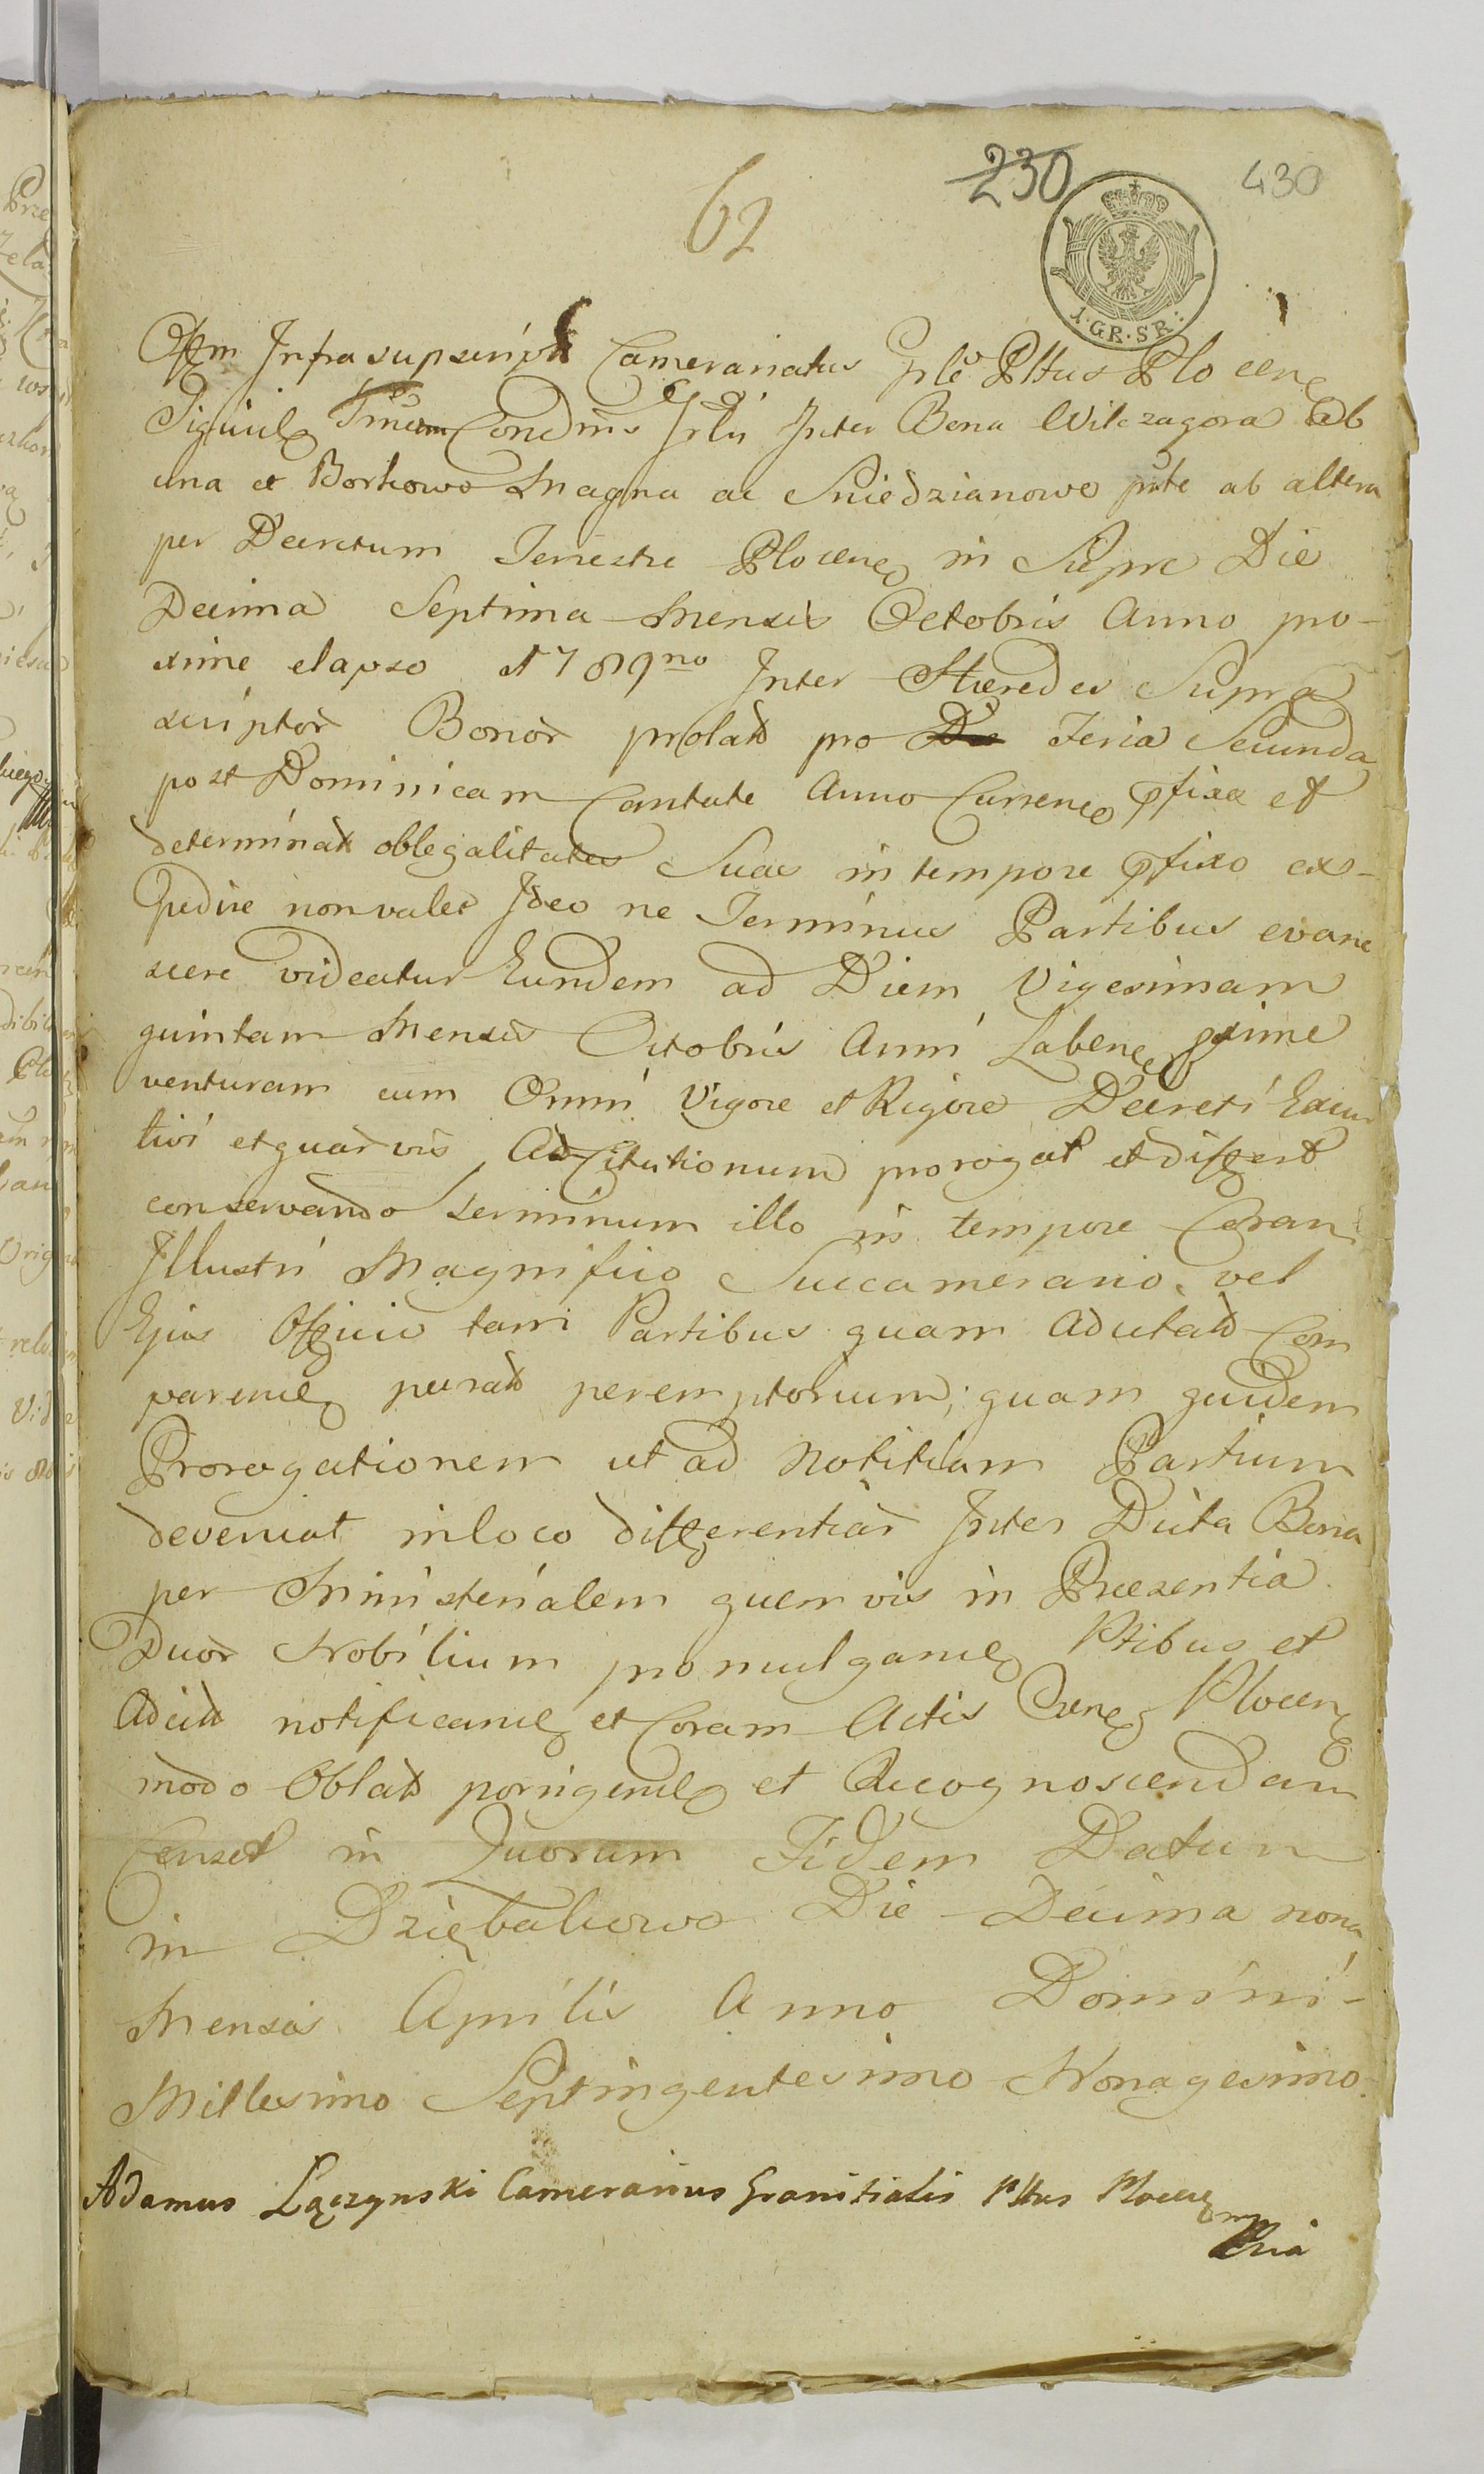 230
430
62
1. GR. SR.
Offm Infrascripti Camerariatus Pltus Plocen
Inter Bona Wilczagora ab
una et Borkowo Magna ac Sniedzianowo ab altera
per Decretum Terrestre Plocen in Die
Decima Septima Mensis Octobris Anno pro-
xime elapso 1789no Inter Hæredes Supra
scriptor Bonor prolat pro Feria Secunda
post Dominicam Cantate Anno Curren pfixæ et
determinat oblegalitates Suas in tempore pfixo ex-
pedire non valet Ideo ne Terminus Partibus evane
scere videatur Eundem ad Diem Vigesimam
quintam Mensis Octobris Anni Laben pxime
venturam cum Omni Vigore et Rigore Decreti Execu
tivi et quarvis Adcitationum prorogat et differt
conservando terminum illo in tempore Coram
Illustri Magnifico Succamerario vel
Ejus Officio tam Partibus quam Adcitat Com
paren peremptorium; quam quidem
Prorogationem ut ad Notitiam Partium
deveniat in loco differentiar Inter Dicta Bona
per Ministerialem quemvis in Præsentia
Duor Nobilium promulgand Ptibus et
Adcit notificand et Coram Actis Plocen
modo Oblat porrigend et Recognoscendam
Censet in Quorum Fidem Datum
in Dziębakowo Die Decima nona
Mensis Aprilis Anno Domini-
Millesimo Septingentesimo Nonagesimo.
Adamus Łączynski Camerarius Granitialis Pltus Plocen
mp